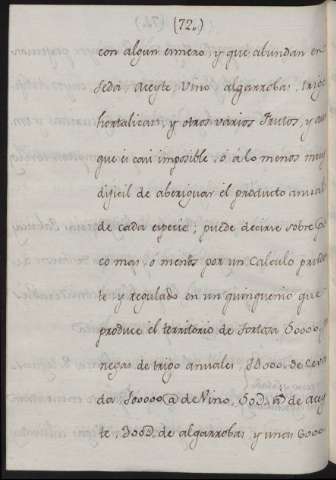 (72.)
con algun esmero, y que abundan en
seda Aceyte, Vino algarrobas, trigo
hortalicas, y otros varios Frutos, y aun
que es casi imposible, ó alo menos muy
dificil de aberiguar el producto anual
de cada especie; puede decirse sobre Po
co mas, o menos por un Calculo pruden
te y regulado en un quinquenio que
produce el territorio de Tortosa 60000
negas de trigo anuales, de Ceva
da 100000 @ de Vino, de acey
te 300 de algarrobas y unas 6000